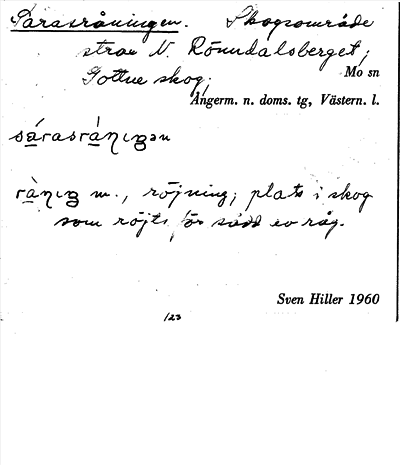 Sarasråningen. Skogsområde
strax N. Römudalsberget;
Gottne skog;
Mo sn
Ångerm. n. doms. tg, Västern. l.
sárasrånıŋən
rànıŋ m., röjning; plats i skog
som röjts för sådd av råg.
Sven Hiller 1960
123